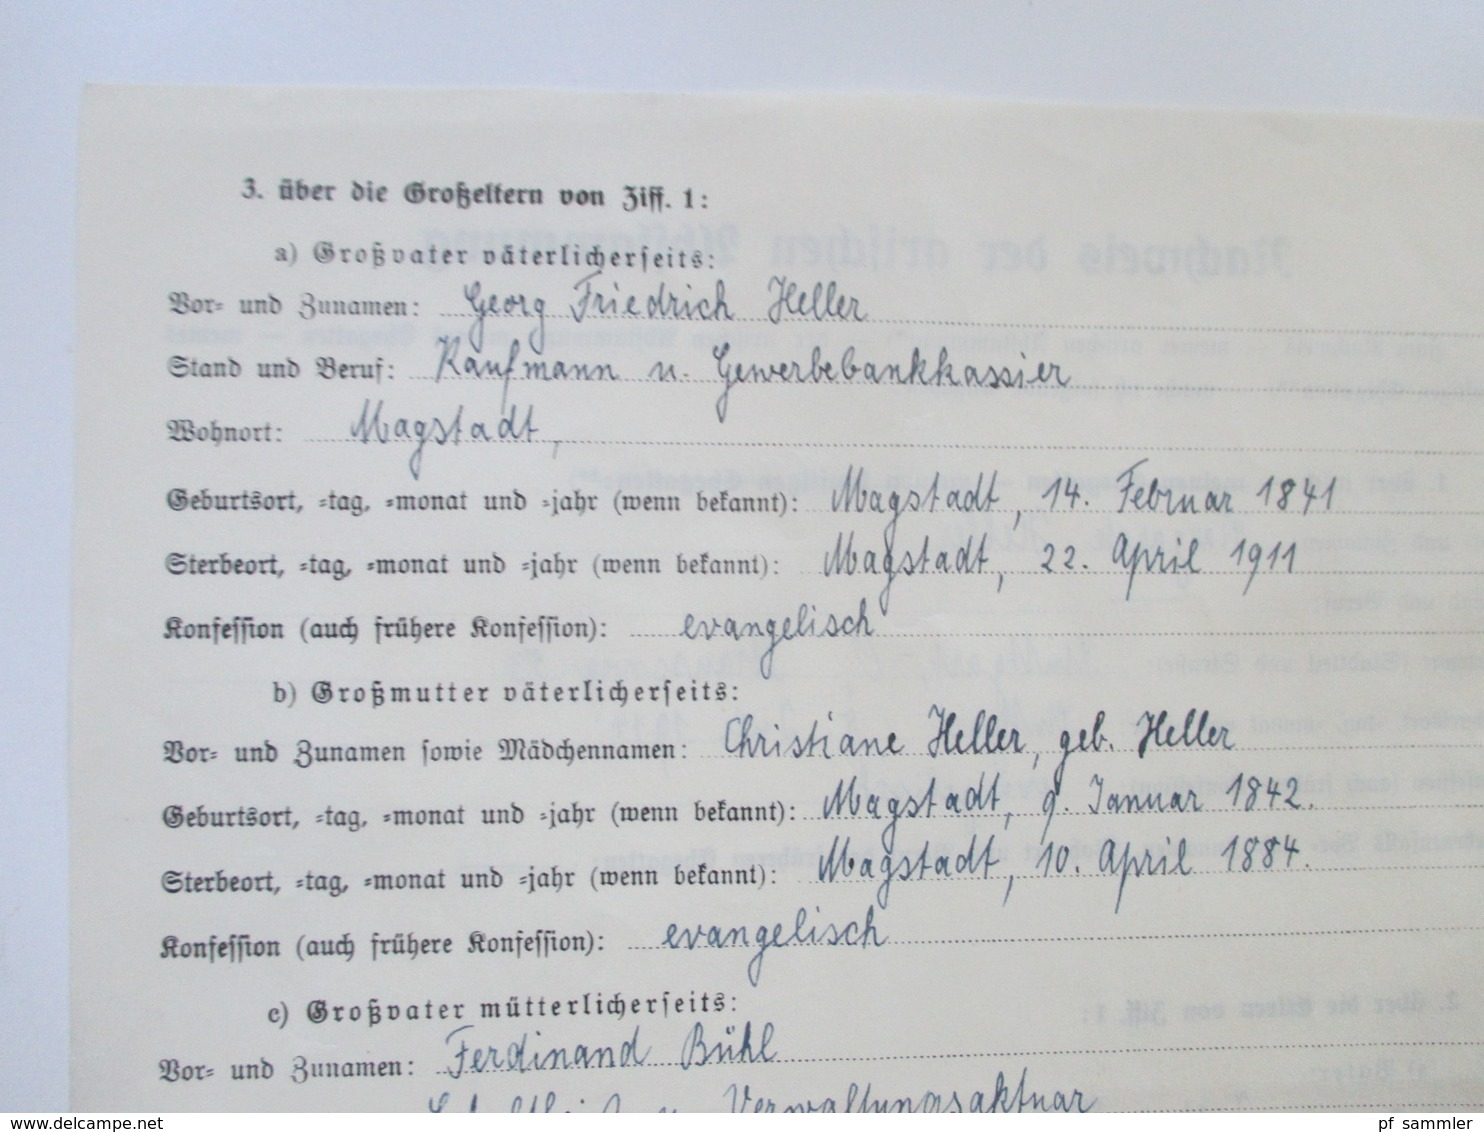 3. über die Großeltern von Ziff. 1:
a) Großvater väterlicherseits:
Vor- und Zunamen: Georg Friedrich Heller
Stand und Beruf: Kaufmann u. Gewerbebankkassier
Wohnort: Magstadt,
Geburtsort, -tag, -monat und -jahr (wenn bekannt): Magstadt, 14. Februar 1841
Sterbeort, -tag, -monat und -jahr (wenn bekannt): Magstadt, 22. April 1911
Konfession (auch frühere Konfession): evangelisch
b) Großmutter väterlicherseits:
Vor- und Zunamen sowie Mädchennamen: Christiane Heller, geb. Heller
Geburtsort, -tag, -monat und -jahr (wenn bekannt): Magstadt, 9. Januar 1842.
Sterbeort, -tag, -monat und -jahr (wenn bekannt): Magstadt, 10. April 1884.
Konfession (auch frühere Konfession): evangelisch
c) Großvater mütterlicherseits:
Vor- und Zunamen: Ferdinand Bühl
u. Verwaltungsaktuar
www.delcampe.net
pf_sammler